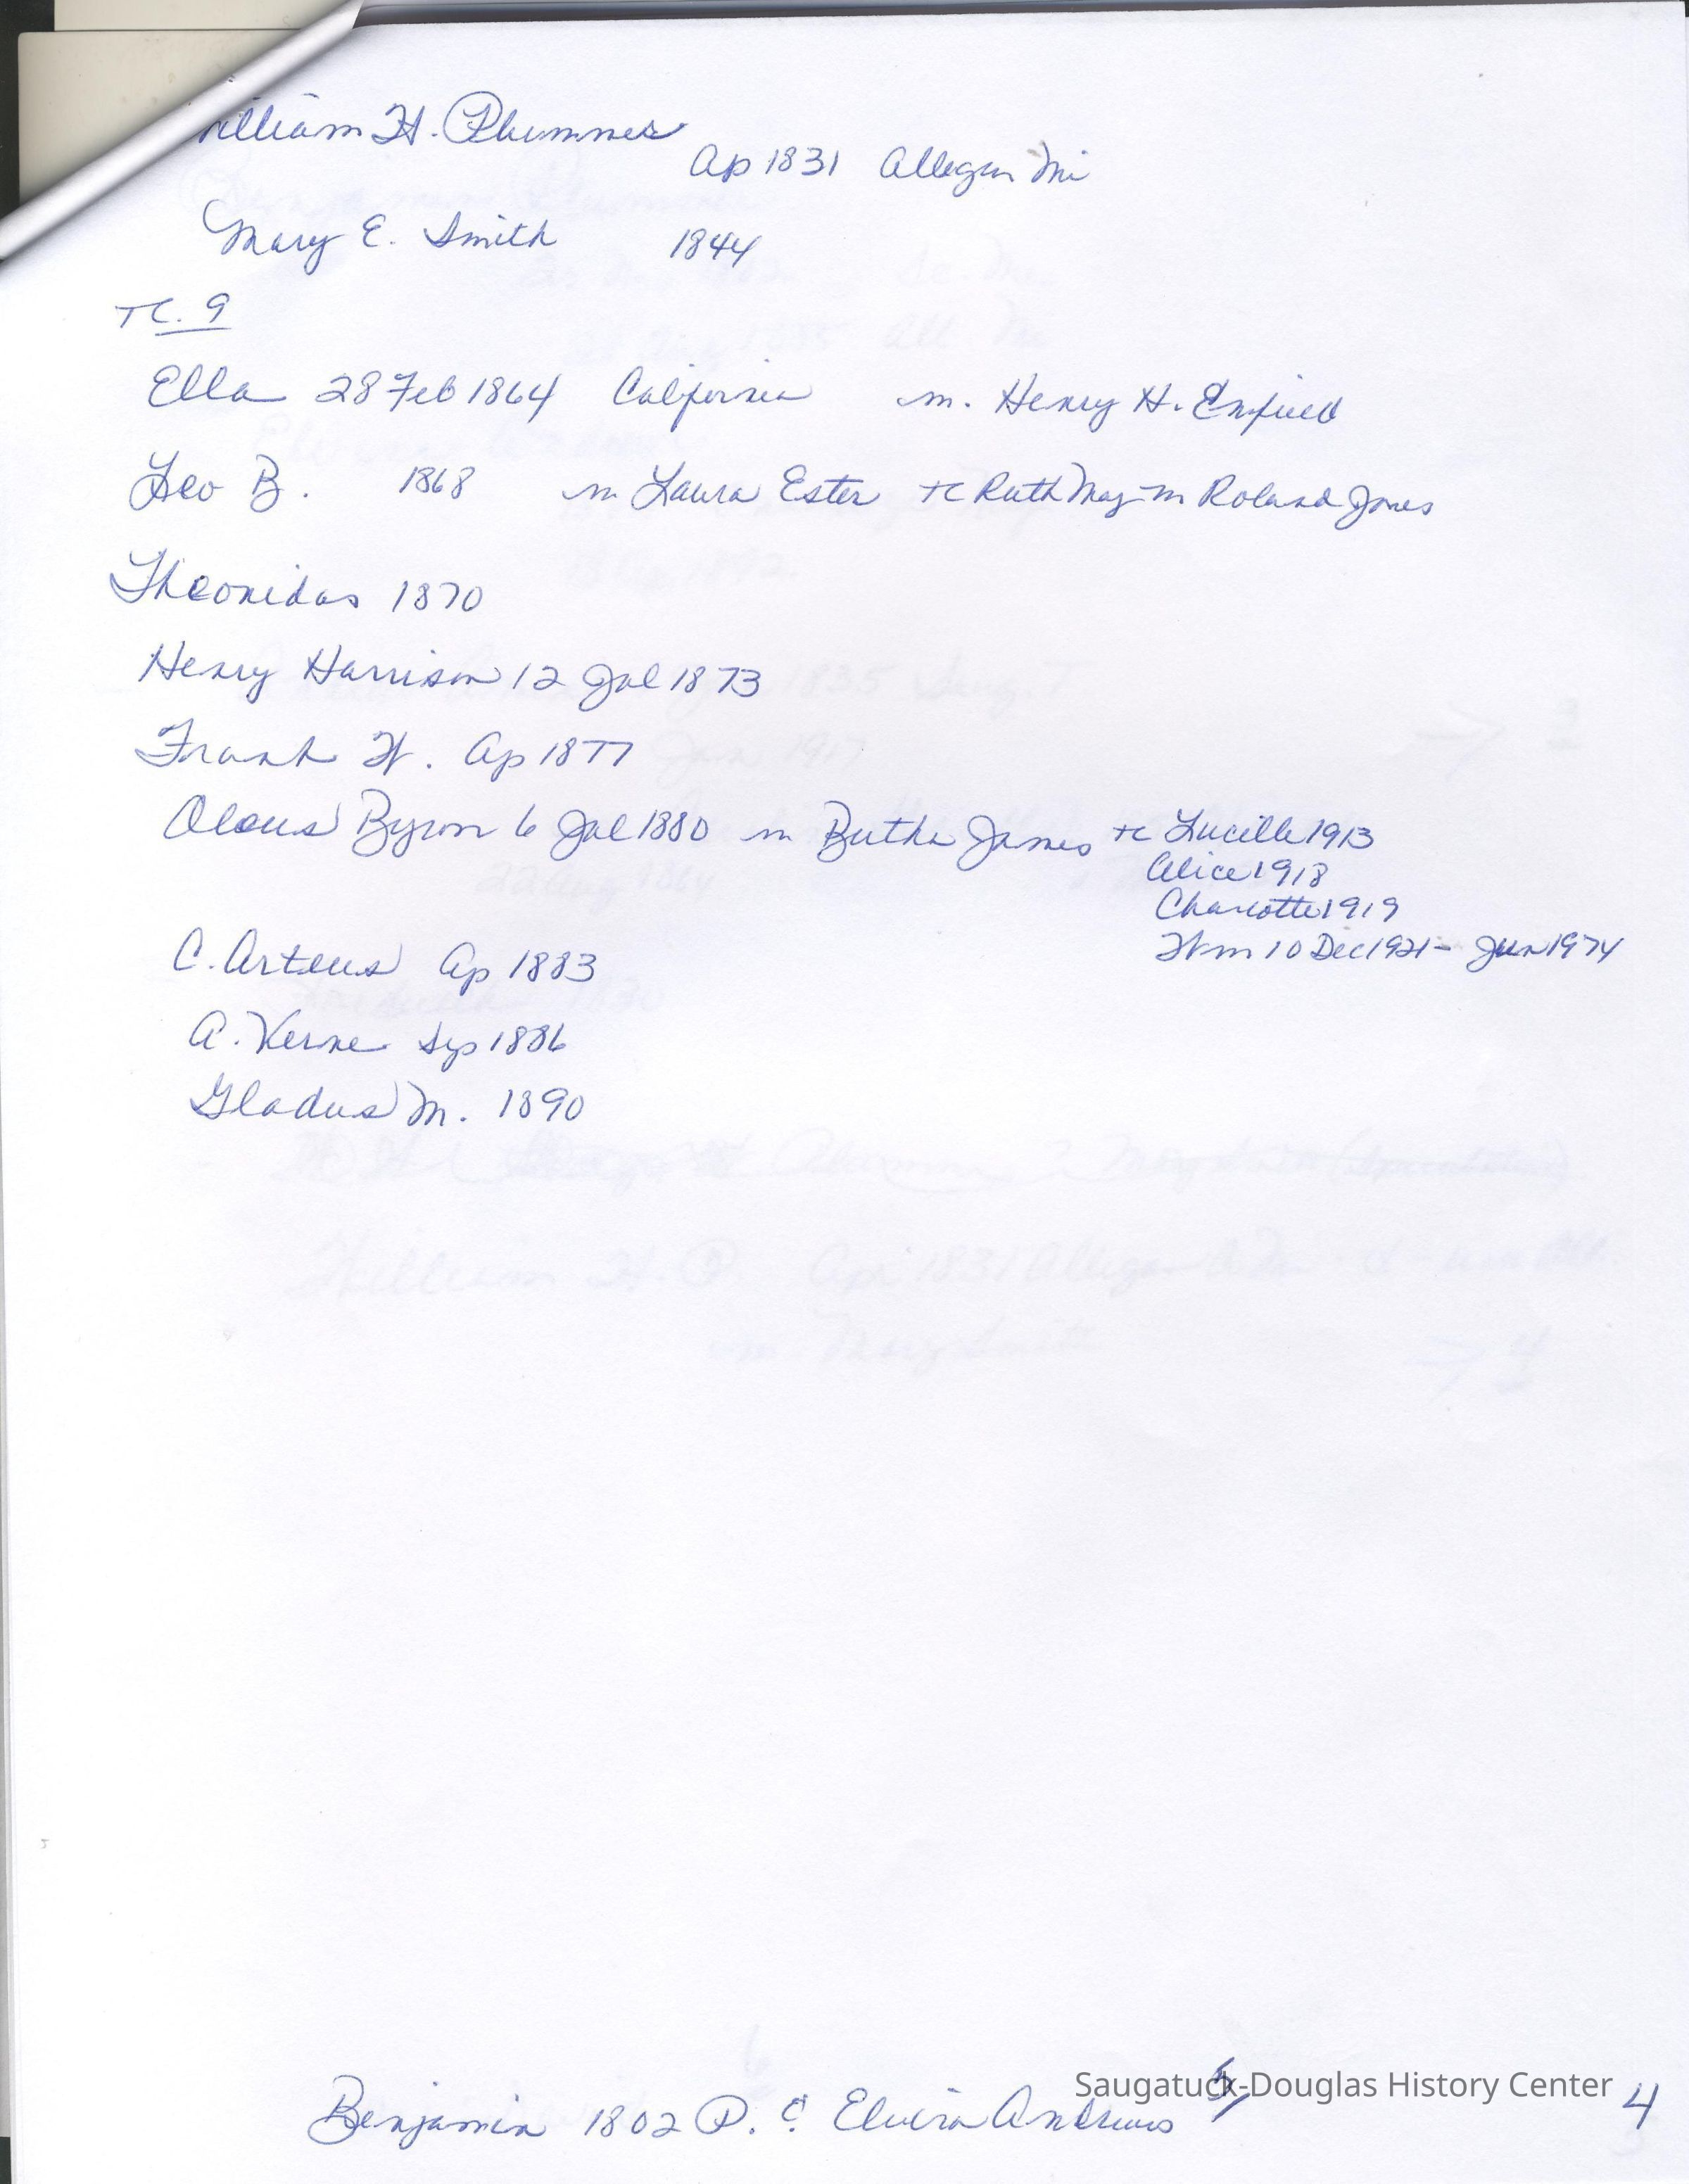 William H. Plummer
Ap 1831 Allegan Mi
Mary E. Smith 1844
TC. 9
Ella 28 Feb 1864 California m. Henry H. Enfield
Leo B. 1868 m Laura Ester TC Ruth May m Roland Jones
Theonidas 1870
Henry Harrison 12 Jul 1873
Frank W. Ap 1877
Byron 6 Jul 1880 m Butha James TC Lucille 1913
Alice 1918
Charlotte 1919
Wm 10 Dec 1921 - Jun 1974
C. Arteus Ap 1883
A. Verne Sep 1886
Gladus M. 1890
Saugatuck-Douglas History Center
4
Benjamin 1802 P. & Elvira Andrews